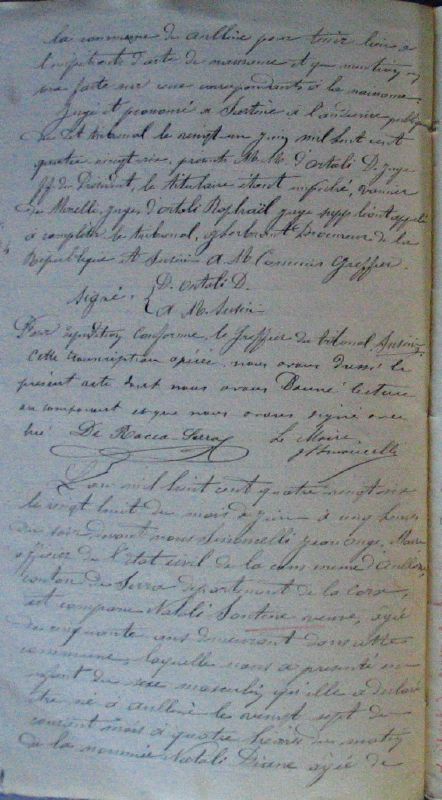 la commune de aullène pour tenir lieu
l'acte de naissance et que mention
sera faite en marge correspondante à la naissance
Jugé et prononcé à Sartène à l'audience publique
du dit tribunal le vingt un juin mil huit cent
quatre vingt onze, présents M.M. d'Ortoli D. juge
ff. de Président, le titulaire étant empêché,
de Morelli, juges d'Ortoli Raphaël juge suppléant appelé
à compléter le tribunal, Procureur de la
République et Susini A M Commis Greffier.
signé: D. Ortoli D.
A M. Susini
Pour expédition conforme, le greffier du tribunal Susini
cette transcription opérée, nous avons dressé le
présent acte dont nous avons donné lecture
au comparant et que nous avons signé avec
lui De Rocca Serra Le Maire
L'an mil huit cent quatre vingt onze
le vingt huit du mois de juin à heures
du soir, devant nous Jean Ange, Maire
officier de l'état civil de la commune d'aullène,
canton de Serra département de la Corse,
est comparue Natali Santine veuve, âgée
de cinquante ans demeurant dans cette
commune, laquelle nous a présenté un
enfant du sexe masculin, qu'elle a déclaré
être né à aullène le vingt sept du
courant mois à quatre heures du matin
de la nommée Natali Diane âgée de